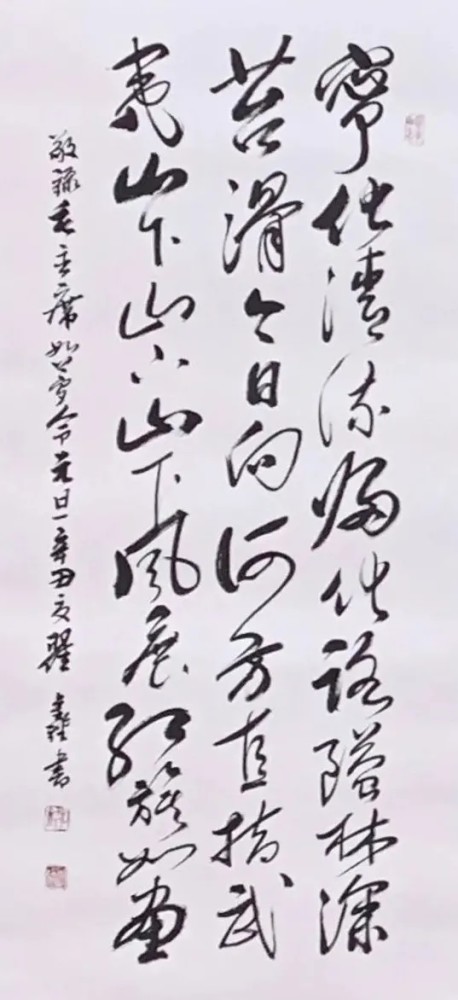 寧化清流歸化路隘林深
苔滑今日向何方直指武
夷山下山下山下風展紅旗如畫
敬録毛主席如夢令元旦辛丑夏翟書